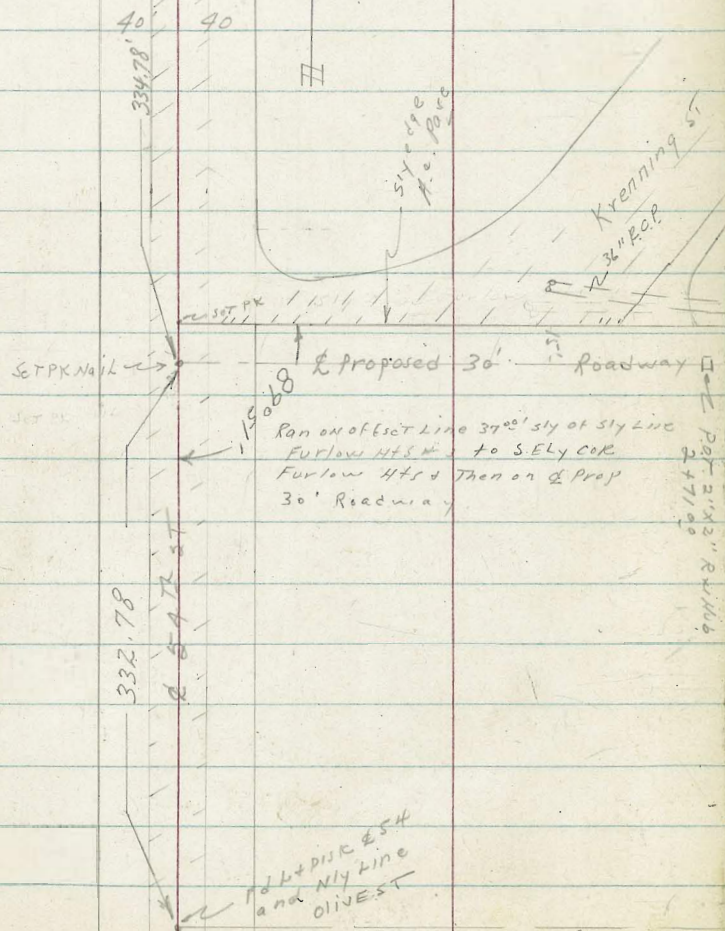 40' 40
334.78'
Sly edge
A.C. Pave
Krenning St
36" R.C.P.
8
Set PK
Set PK Nail
15'
℄ Proposed 30' Roadway
89°51'
Ran on offset Line 37.00' sly of sly Line
Furlow Hts & to S.Ely cor
Furlow Hts & Then on ℄ Prop
30' Roadway
2"x2" Rw Hub
2+71.00
332.78
℄ 54 Th ST
Fd L+Disk ℄ 54
and Nly Line
Olive ST